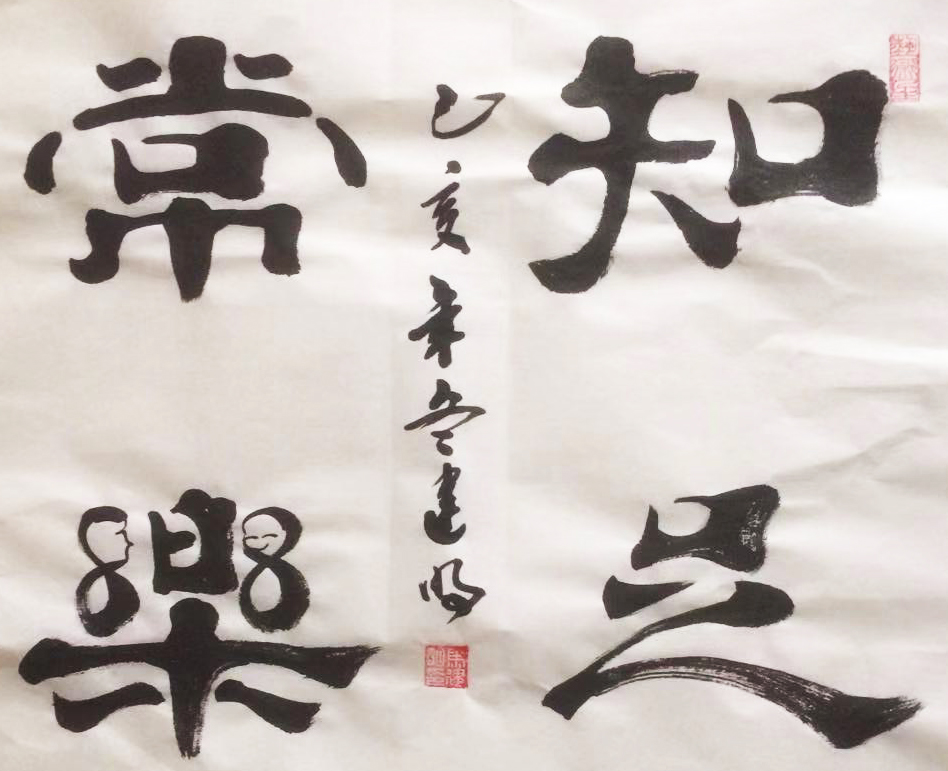 知足
常樂
己亥年冬建明